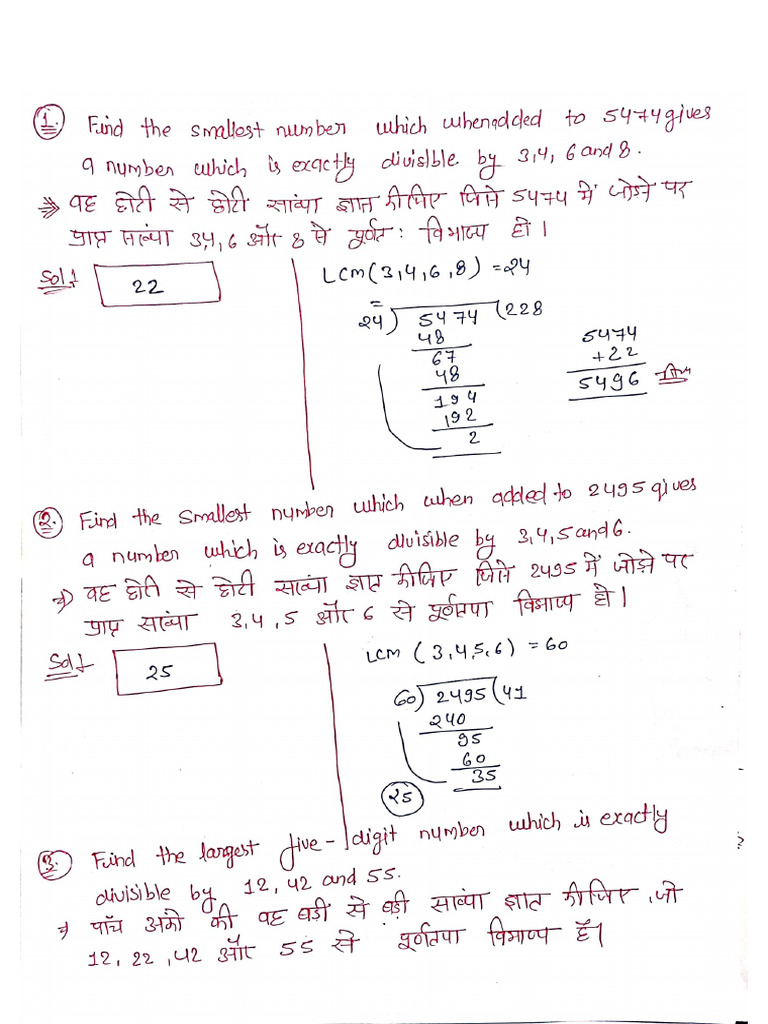 1. Find the smallest number which when added to 5474 gives
a number which is exactly divisible by 3,4, 6 and 8.
⇒ वह छोटी से छोटी संख्या ज्ञात कीजिए जिसे 5474 में जोड़ने पर
प्राप्त संख्या 3,4,6 और 8 से पूर्णत: विभाज्य हो।
Sol.
22
LCM(3,4,6,8) = 24
=
24) 5474 (228
48
67
48
194
192
2
5474
+22
5496
2. Find the smallest number which when added to 2495 gives
a number which is exactly divisible by 3,4,5 and 6.
⇒ वह छोटी से छोटी संख्या ज्ञात कीजिए जिसे 2495 में जोड़ने पर
प्राप्त संख्या 3,4,5 और 6 से पूर्णतया विभाज्य हो।
Sol.
25
LCM (3,4,5,6) = 60
60) 2495 (41
240
95
60
35
25
3. Find the largest five-digit number which is exactly
divisible by 12, 42 and 55.
⇒ पाँच अंको की वह बड़ी से बड़ी संख्या ज्ञात कीजिए, जो
12, 22, 42 और 55 से पूर्णतया विभाज्य है।